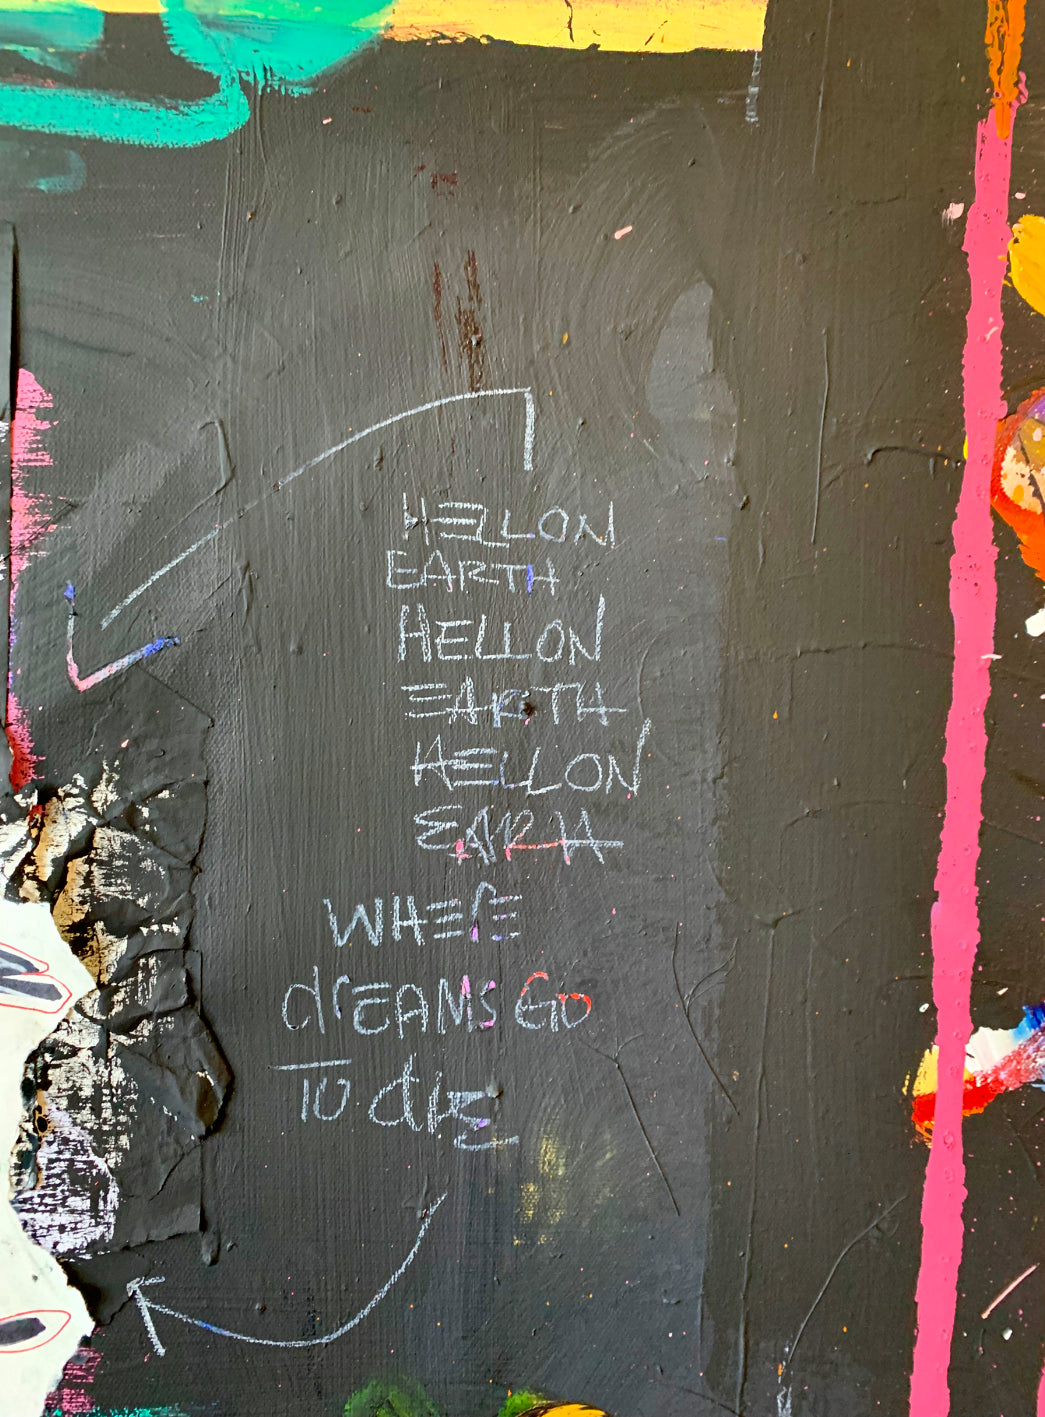 HELLON
EARTH
HELLON
EARTH
HELLON
EARTH
WHERE
dREAMS GO
TO dIE